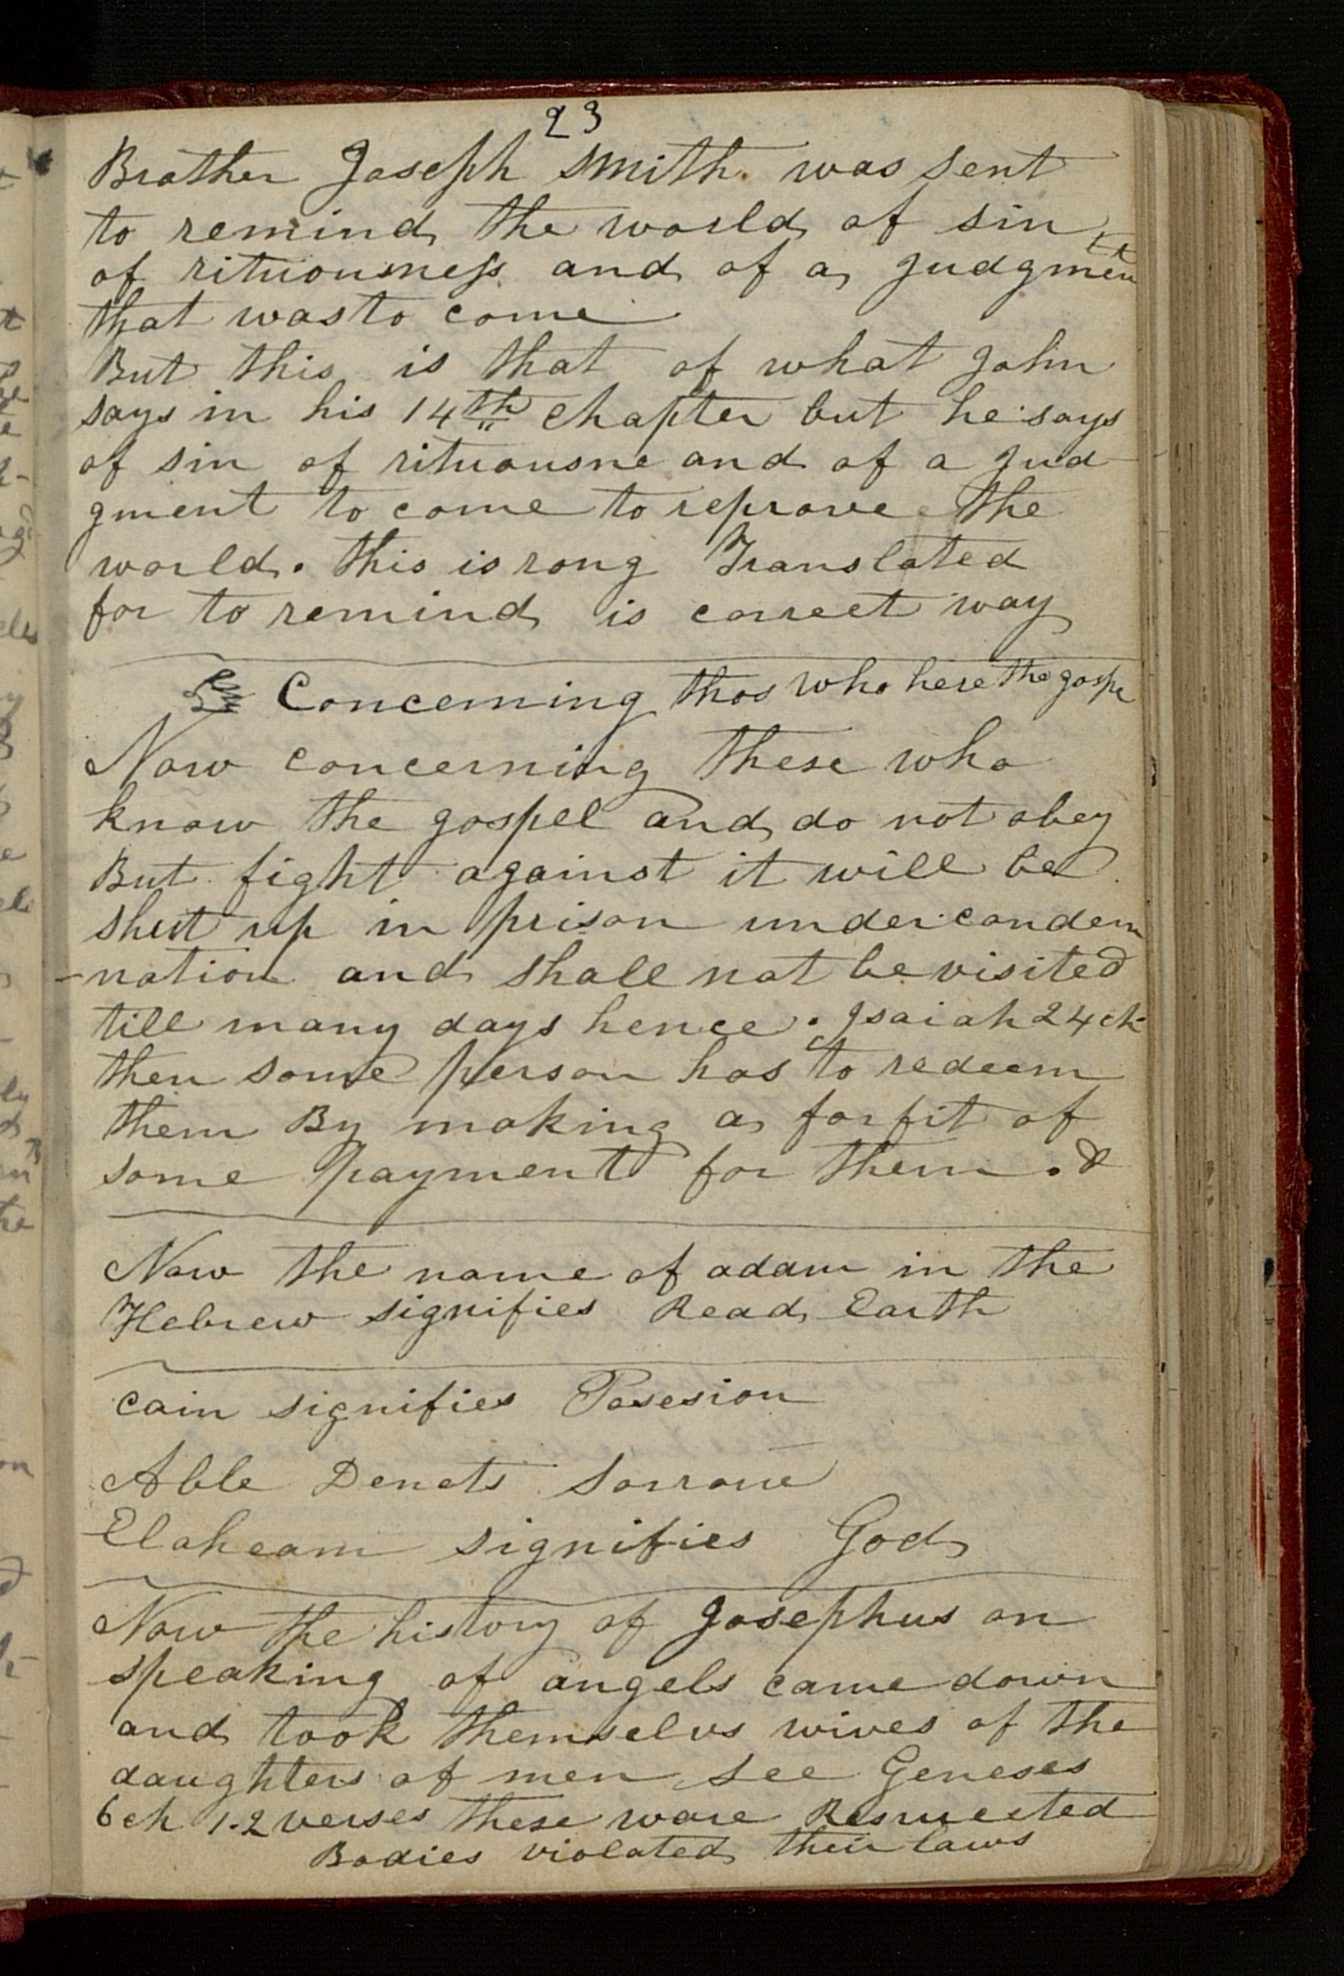 23
Brother Joseph Smith. was sent
to remind the world of sin
of rituousness and of a Judgment
that was to come
But this is that of what John
says in his 14th chapter but he says
of sin of rituousne and of a Jud
gment to come to reprove the
world. this is rong Translated
for to remind is correct way
Concerning thos who here the gospe
Now concerning these who
know the gospel and do not obey
But fight against it will be
shut up in prison under condem
-nation and shall not be visited
till many days hence. Isaiah 24 ch
then some person has to redeem
them By making a forfit of
some payment for them. &
Now the name of adam in the
Hebrew signifies Read Earth
Cain signifies Posesion
Able Denots Sorrow
Elaheam signifies God
Now the history of Josephus on
speaking of angels came down
and took themselvs wives of the
daughters of men see Geneses
6 ch 1.2 verses these ware Resructed
Bodies violated their laws